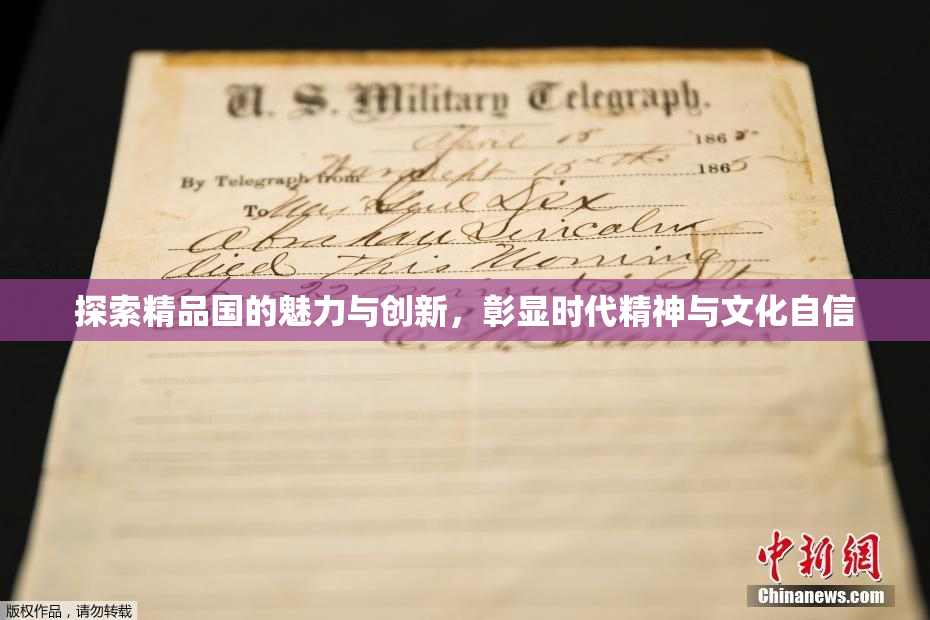 U. S. Military Telegraph.
April 15 1865
By Telegraph from War Dept 15th 1865
To Maj Genl Dix
Abraham Lincoln
died This Morning
at 22 minutes after
探索精品国的魅力与创新，彰显时代精神与文化自信
E. M. Stanton
中新网
Chinanews.com
版权作品，请勿转载